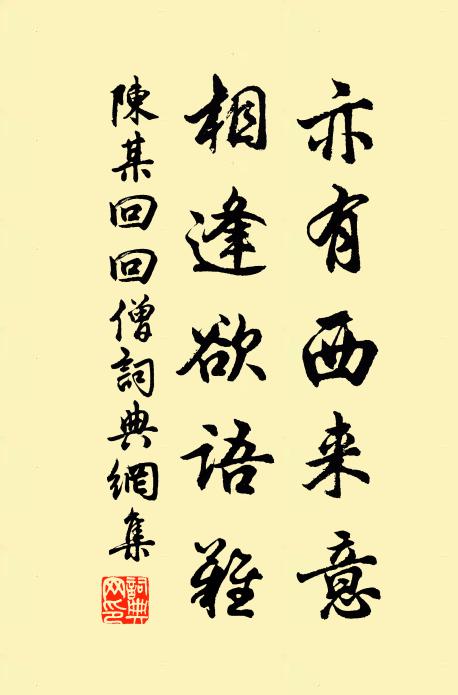 亦有西来意
相逢欲語難
陳某回回僧詞典網集
詞典网印